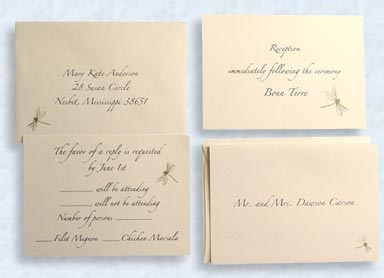 Mary Kate Anderson
28 Susan Circle
Nesbit, Mississippi 38651
Reception
immediately following the ceremony
Bonn Terre
The favor of a reply is requested
by June 1st
______ will be attending
______ will not be attending
Number of persons ________
____ Filet Mignon ____ Chicken Marsala
Mr. and Mrs. Dawson Carson